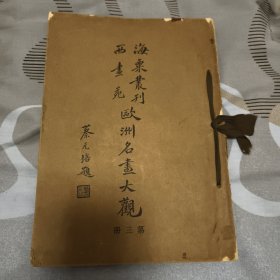 海粟叢刊
西畫苑
歐洲名畫大觀
第三册
蔡元培題